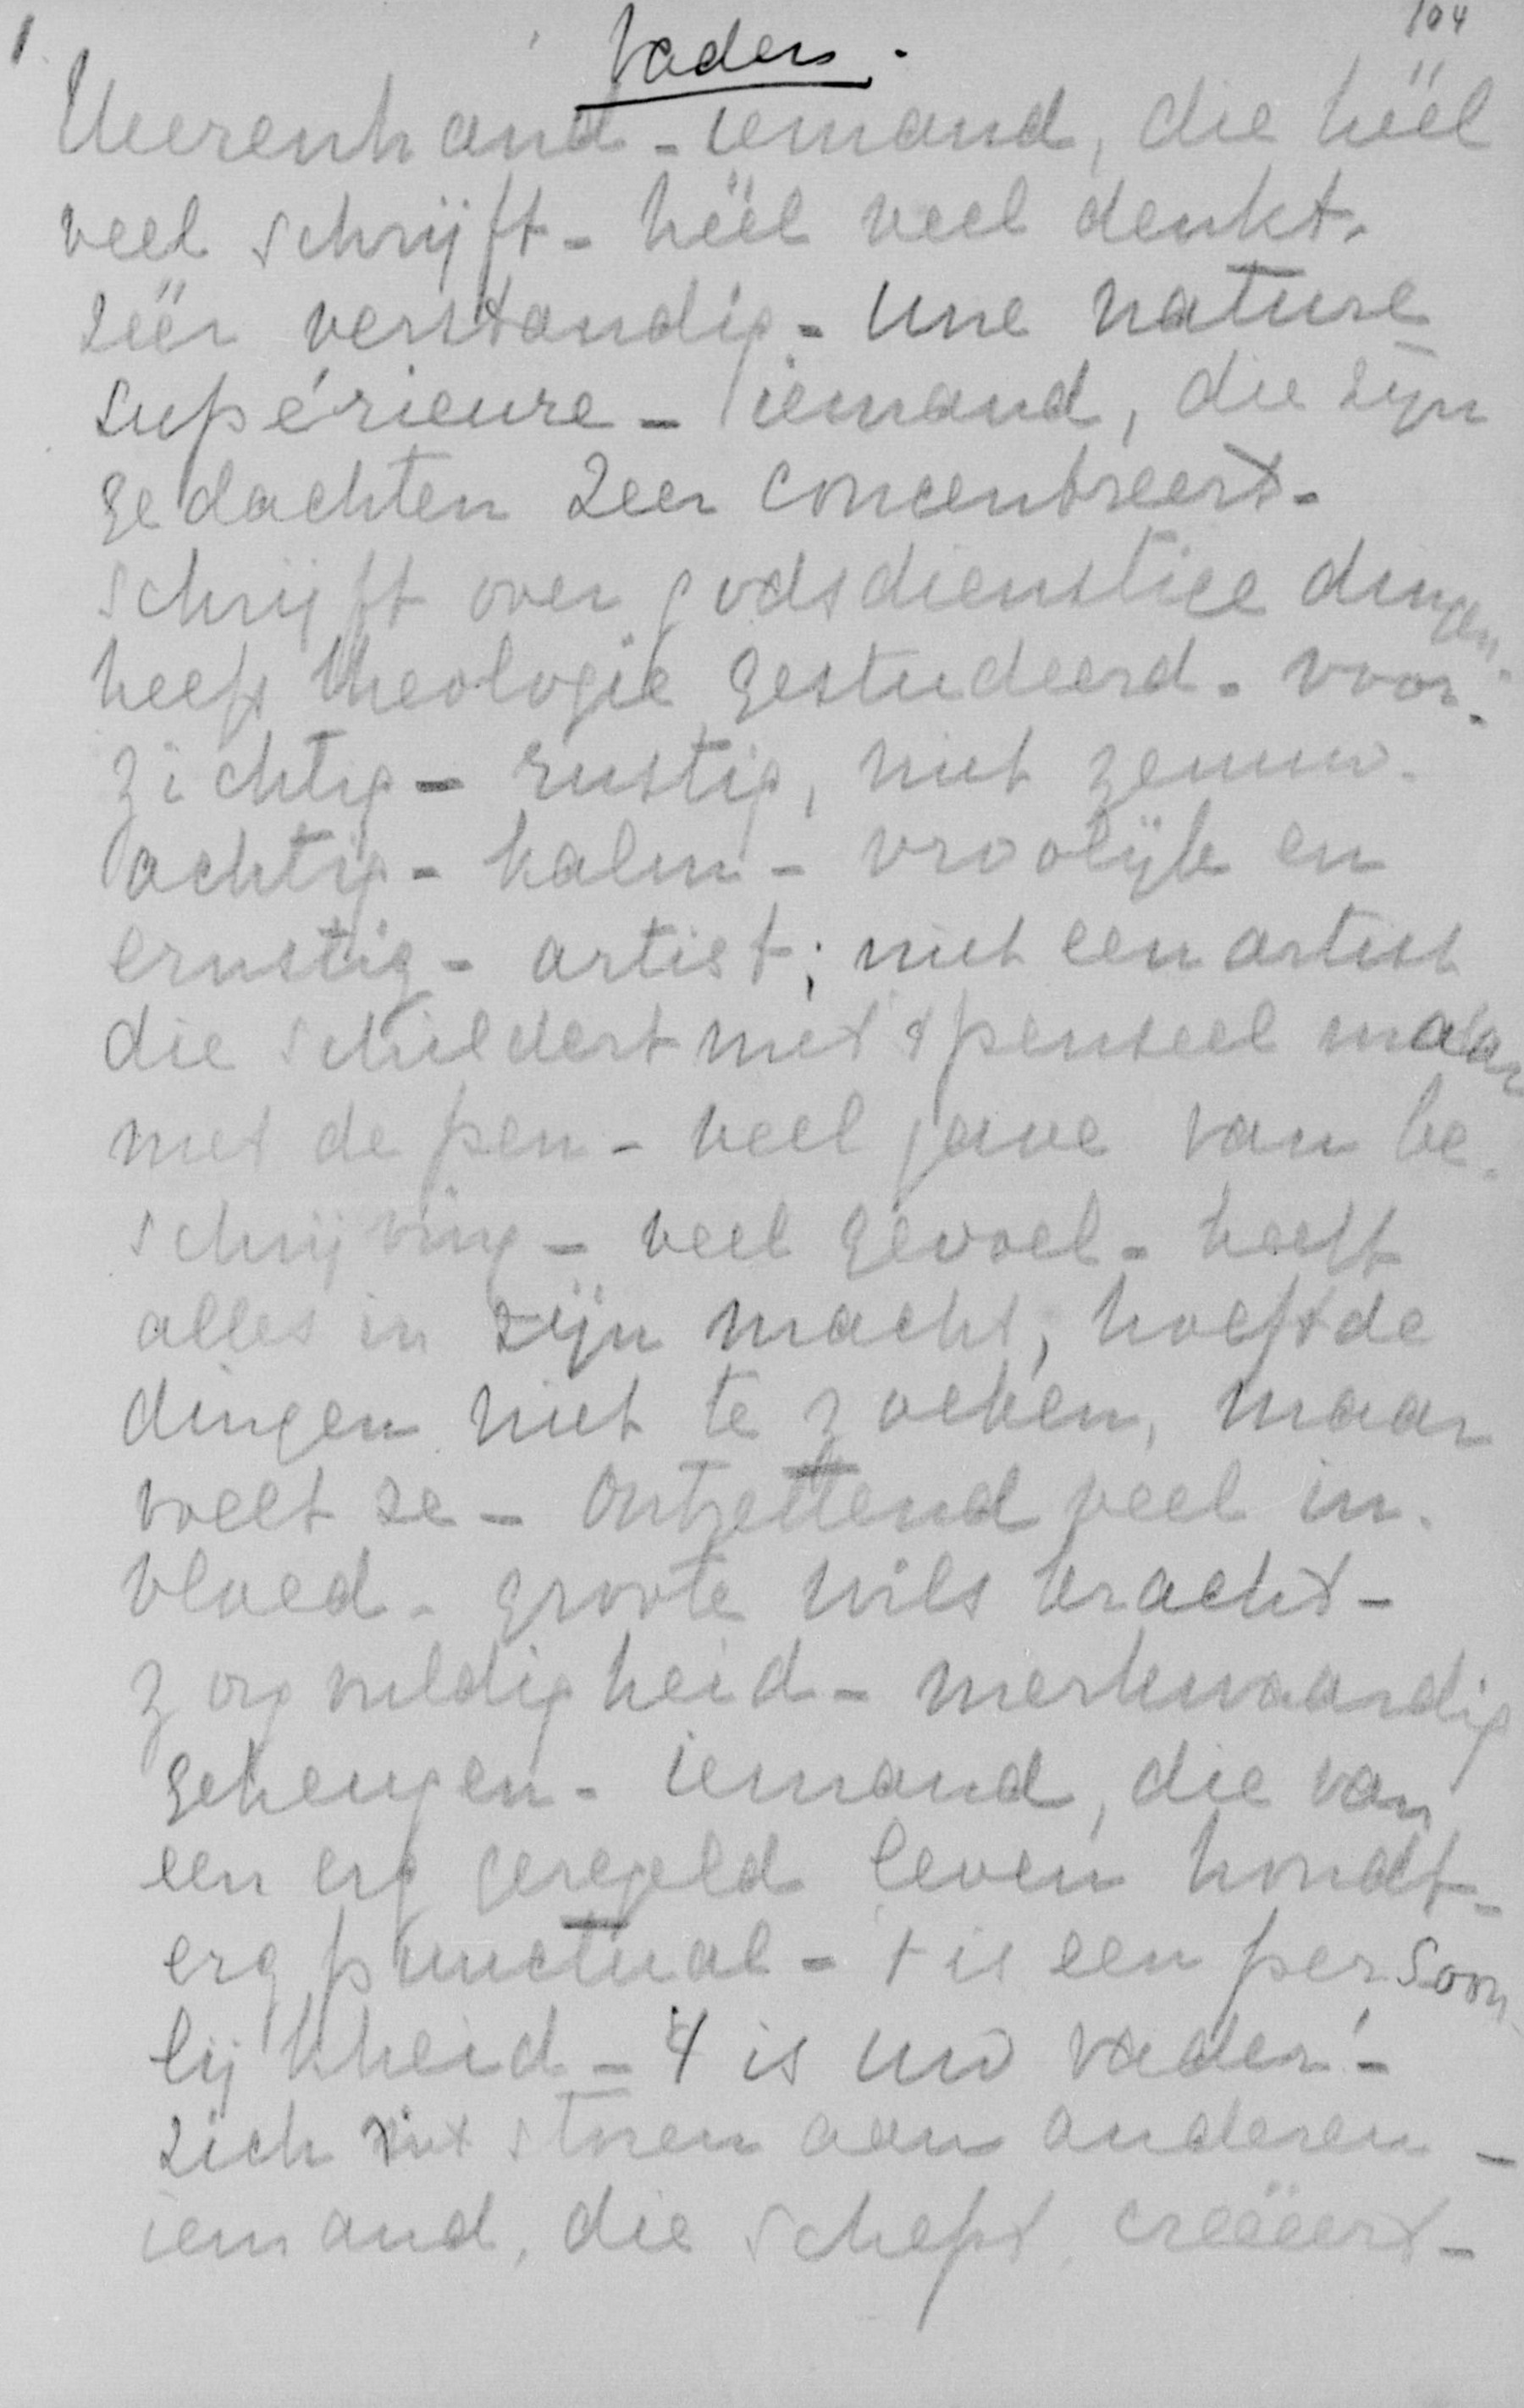 1. Vaders. 104
Heerenhand - iemand, die héél
veel schrijft - héél veel denkt.
zéér verstandig - une nature
supérieure - iemand, die zijn
gedachten zeer concentreert -
schrijft over godsdienstige dingen.
heeft theologie gestudeerd - voor-
zichtig - rustig, niet zenuw-
achtig - kalm - vroolijk en
ernstig - artist; niet een artist
die schildert met 't penseel maar
met de pen - veel gave van be-
schrijving - veel gevoel - heeft
alles in zijn macht, hoeft de
dingen niet te zoeken, maar
voelt ze - ontzettend veel in-
vloed - groote wilskracht -
zorgvuldigheid - merkwaardig
geheugen - iemand, die van
een erg geregeld leven houdt -
erg punctual - 't is een persoon-
lijkheid - 't is uw vader! -
zich niet storen aan anderen -
iemand, die schept, creëert -